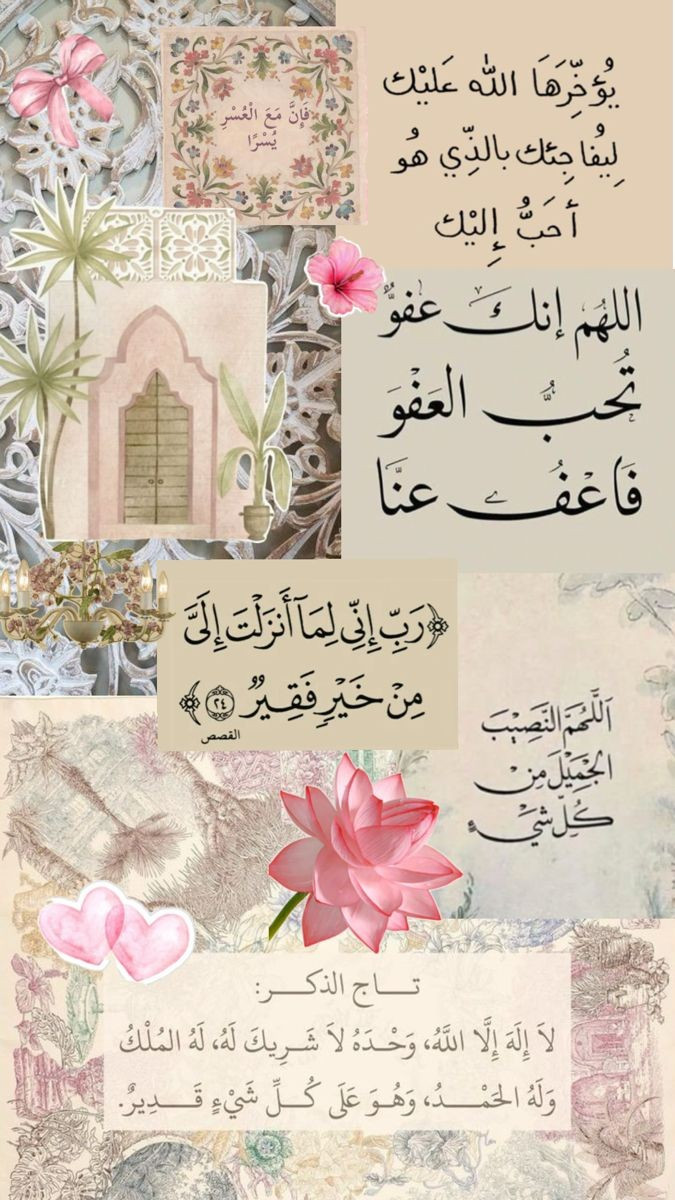 فَإِنَّ مَعَ الْعُسْرِ
يُسْرًا
يُؤخِّرَهَا الله عَليْك
لِيُفاجِئك بالذِّي هُو
أحَبُّ إِليْك
اللهُم إنكَ عَفوٌّ
تُحبُّ العَفوَ
فَاعْفُ عنَّا
﴿رَبِّ إِنِّي لِمَآ أَنزَلْتَ إِلَيَّ
مِنْ خَيْرٍ فَقِيرٌ ٢٤﴾
القصص
اَللَّهُمَّ النَّصِيْبَ
الجْمِيْلَ مِنْ
كُلِّ شَيْءٍ
تاج الذكر:
لاَ إِلَهَ إِلَّا اللَّهُ، وَحْدَهُ لاَ شَرِيكَ لَهُ، لَهُ المُلْكُ
وَلَهُ الحَمْدُ، وَهُوَ عَلَى كُلِّ شَيْءٍ قَدِيرٌ.